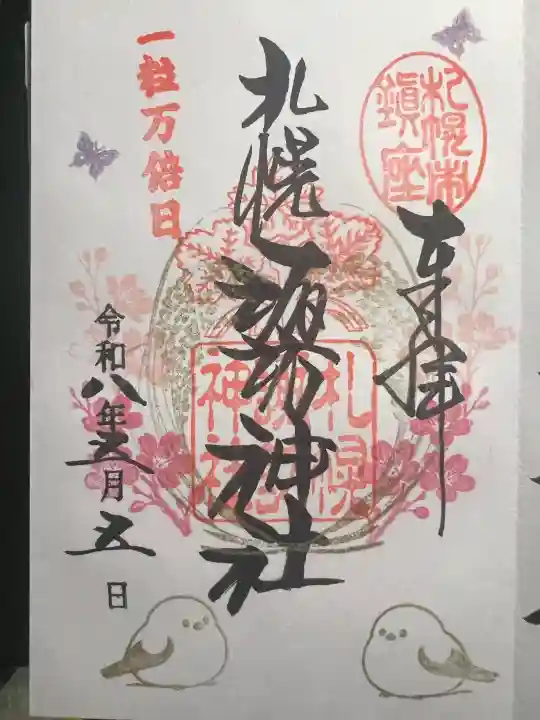 奉拝
札幌市鎮座
札幌諏訪神社
札幌諏訪神社
一粒万倍日
令和八年三月五日